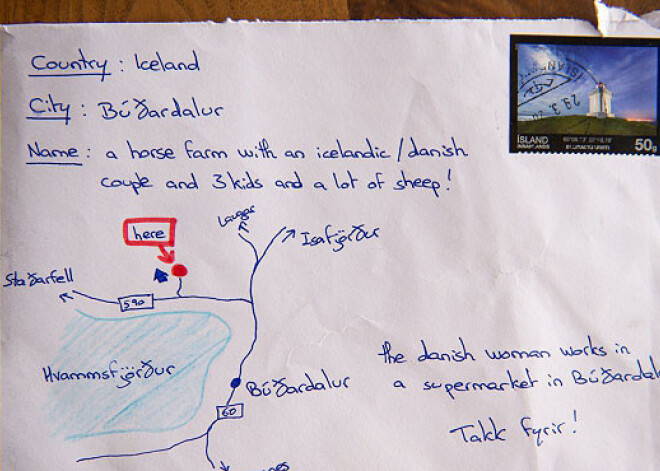 Country : Iceland
City : Búðardalur
Name : a horse farm with an icelandic/danish
couple and 3 kids and a lot of sheep!
ÍSLAND
50g
ÍSLAND
29.3.
here
Laugar
Isafjörður
Staðarfell
590
Hvammsfjörður
Búðardalur
60
the danish woman works in
a supermarket in Búðardal
Takk fyrir!